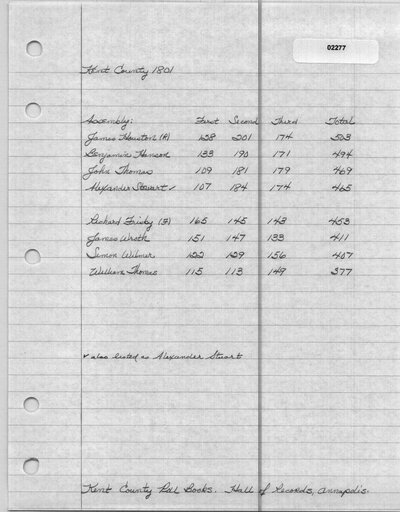 02277
Kent County 1801
Assembly: First Second Third Total
James Houston (R) 128 201 174 503
Benjamin Hanson 133 190 171 494
John Thomas 109 181 179 469
Alexander Stewart ✓ 107 184 174 465
Richard Frisby (F) 165 145 143 453
James Wroth 151 147 133 411
Simon Wilmer 122 129 156 407
William Thomas 115 113 149 377
✓ also listed as Alexander Stuart
Kent County Poll Books. Hall of Records, Annapolis.